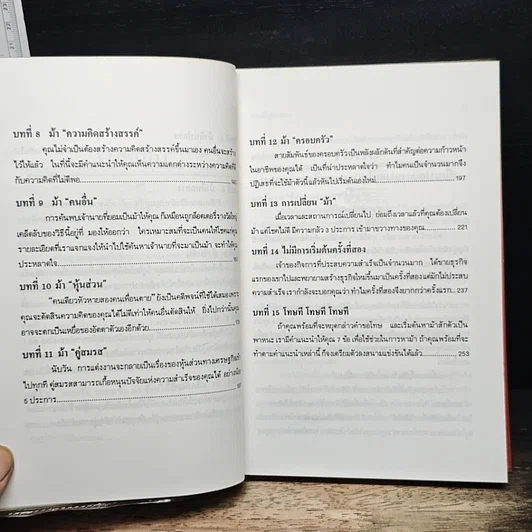 บทที่ 8 ม้า "ความคิดสร้างสรรค์"
คุณไม่จำเป็นต้องสร้างความคิดสร้างสรรค์ขึ้นมาเอง คนอื่นจะสร้าง
ไว้ให้แล้ว ในที่นี้จะมีคำแนะนำให้คุณเห็นความแตกต่างระหว่างความคิดที่ดี
กับความคิดที่ไม่ดีพอ
บทที่ 9 ม้า "คนอื่น"
การค้นพบเจ้านายที่ยอมเป็นม้าให้คุณ ก็เหมือนถูกล็อตเตอรี่รางวัลใหญ่
เคล็ดลับของวิธีนี้อยู่ที่ มองให้ออกว่า ใครเหมาะสมที่จะเป็นคนให้โชคแก่คุณ
รายละเอียดที่เราแจกแจงให้นำไปใช้ค้นหาเจ้านายที่จะมาเป็นม้า จะทำให้คุณ
ประหลาดใจ
บทที่ 10 ม้า "หุ้นส่วน"
"คนเดียวหัวหายสองคนเพื่อนตาย" ยังเป็นคติพจน์ที่ใช้ได้เสมอเพราะ
คุณจะตัดสินความคิดของคุณได้ไม่ดีเท่าให้คนอื่นตัดสินให้ ยิ่งไปกว่านั้นคุณ
อาจจะตกเป็นเหยื่อของอัตตาตัวเองอีกด้วย
บทที่ 11 ม้า "คู่สมรส"
นับวัน การแต่งงานจะกลายเป็นเรื่องของหุ้นส่วนทางเศรษฐกิจเข้า
ไปทุกที คู่สมรสสามารถเกื้อหนุนปัจจัยแห่งความสำเร็จของคุณได้ อย่างน้อย
5 ประการ
บทที่ 12 ม้า "ครอบครัว"
สายสัมพันธ์ของครอบครัวเป็นพลังผลักดันที่สำคัญต่อความก้าวหน้า
ในอาชีพของคุณได้ เป็นที่น่าประหลาดใจว่า ทำไมคนเป็นจำนวนมากจึง
ปฏิเสธที่จะใช้ม้าตัวนี้แล้วหันไปเริ่มต้นเองใหม่ 197
บทที่ 13 การเปลี่ยน "ม้า"
เมื่อเวลาและสถานการณ์เปลี่ยนไป ย่อมถึงเวลาแล้วที่คุณต้องเปลี่ยน
ม้า แต่โชคไม่ดี มีความกลัว 3 ประการ เข้ามาขวางทางของคุณ 221
บทที่ 14 ไม่มีการเริ่มต้นครั้งที่สอง
เจ้าของกิจการที่ประสบความสำเร็จเป็นจำนวนมาก ได้ขายธุรกิจ
แรกของเขาไปและพยายามสร้างธุรกิจใหม่ขึ้นมาเป็นครั้งที่สอง แต่มักไม่ประสบ
ความสำเร็จ เรากำลังจะบอกคุณว่า ทำไมครั้งที่สองจึงยากกว่าครั้งแรก 237
บทที่ 15 โทษที โทษที โทษที
ถ้าคุณพร้อมที่จะหยุดกล่าวคำขอโทษ และเริ่มต้นหาม้าสักตัวเป็น
พาหนะ เรามีคำแนะนำให้คุณ 7 ข้อ เพื่อใช้ช่วยในการหาม้า ถ้าคุณพร้อมที่จะ
ทำตามคำแนะนำเหล่านี้ ก็จงเตรียมตัวลงสนามแข่งขันได้แล้ว 253